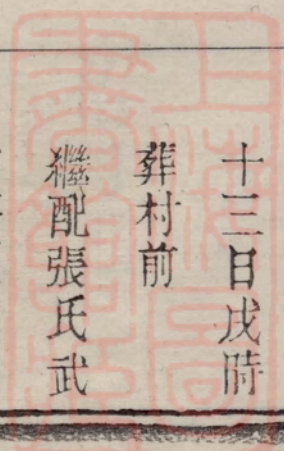 十三日戌時
葬村前
繼配張氏武